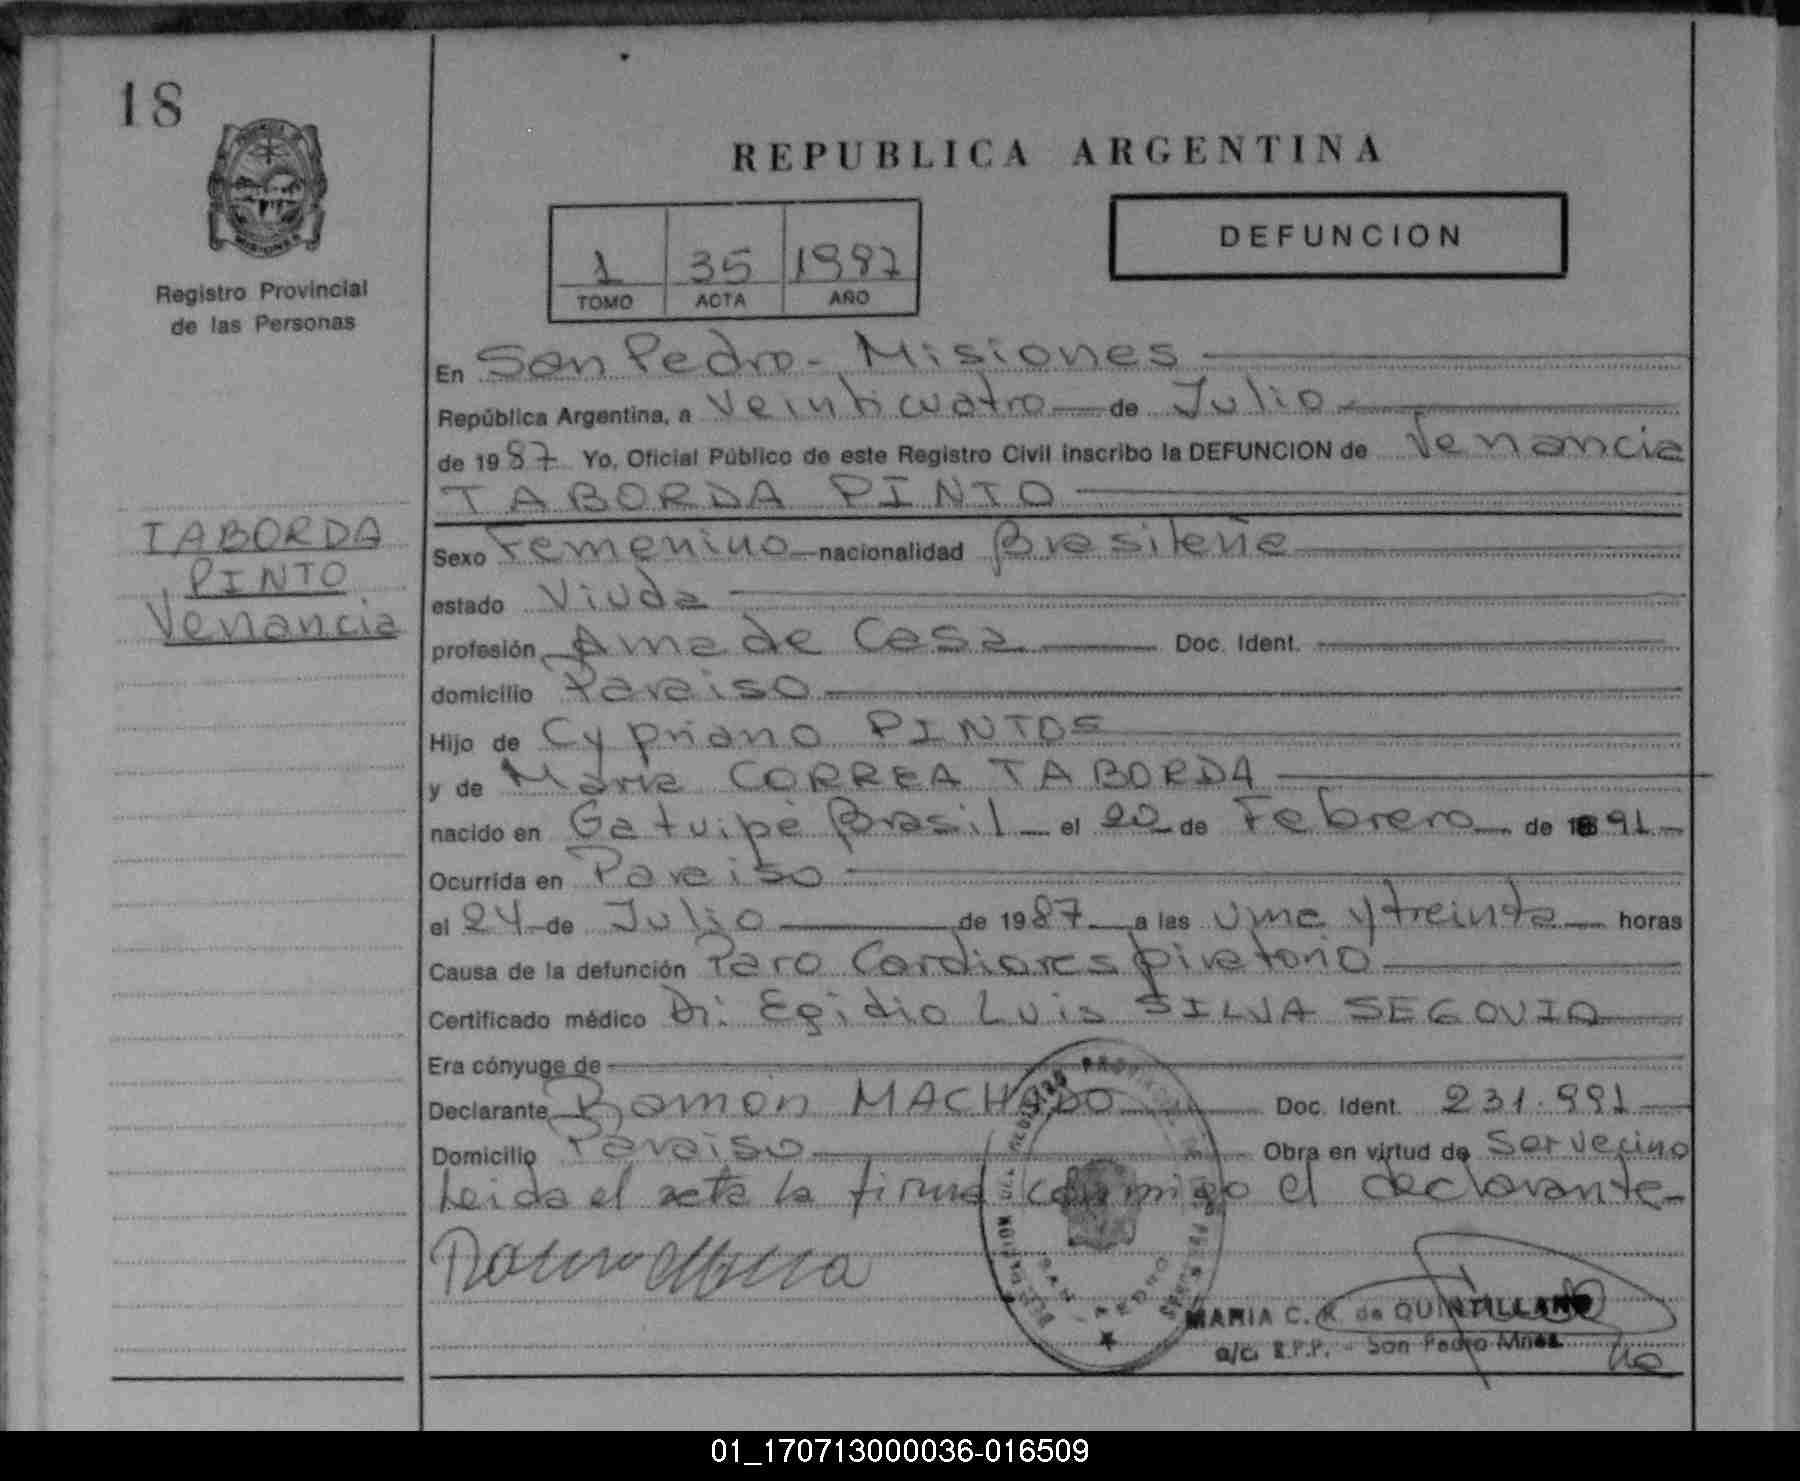 18
Registro Provincial
de las Personas
TABORDA
PINTO
Venancia
REPUBLICA ARGENTINA
1 35 1987
TOMO ACTA AÑO
DEFUNCION
En San Pedro - Misiones
República Argentina, a Veinticuatro de Julio
de 1987 Yo, Oficial Público de este Registro Civil inscribo la DEFUNCION de Venancia
TABORDA PINTO
Sexo Femenino nacionalidad Brasileña
estado Viuda
profesión Ama de Casa Doc. Ident.
domicilio Paraiso
Hijo de Cypriano PINTOS
y de Maria CORREA TABORDA
nacido en Gatuipé Brasil el 20 de Febrero de 1891
Ocurrida en Paraiso
el 24 de Julio de 1987 a las Una y treinta horas
Causa de la defunción Paro Cardiorespiratorio
Certificado médico Dr: Egidio Luis SILVA SEGOVIA
Era cónyuge de
Declarante Ramón MACHADO Doc. Ident. 231.991
Domicilio Paraiso Obra en virtud de Ser vecino
Leida el acta la firma conmigo el declarante
MARIA C. K. de QUINTILLANO
a/c. R.P.P. - San Pedro Mnes.
01_170713000036-016509